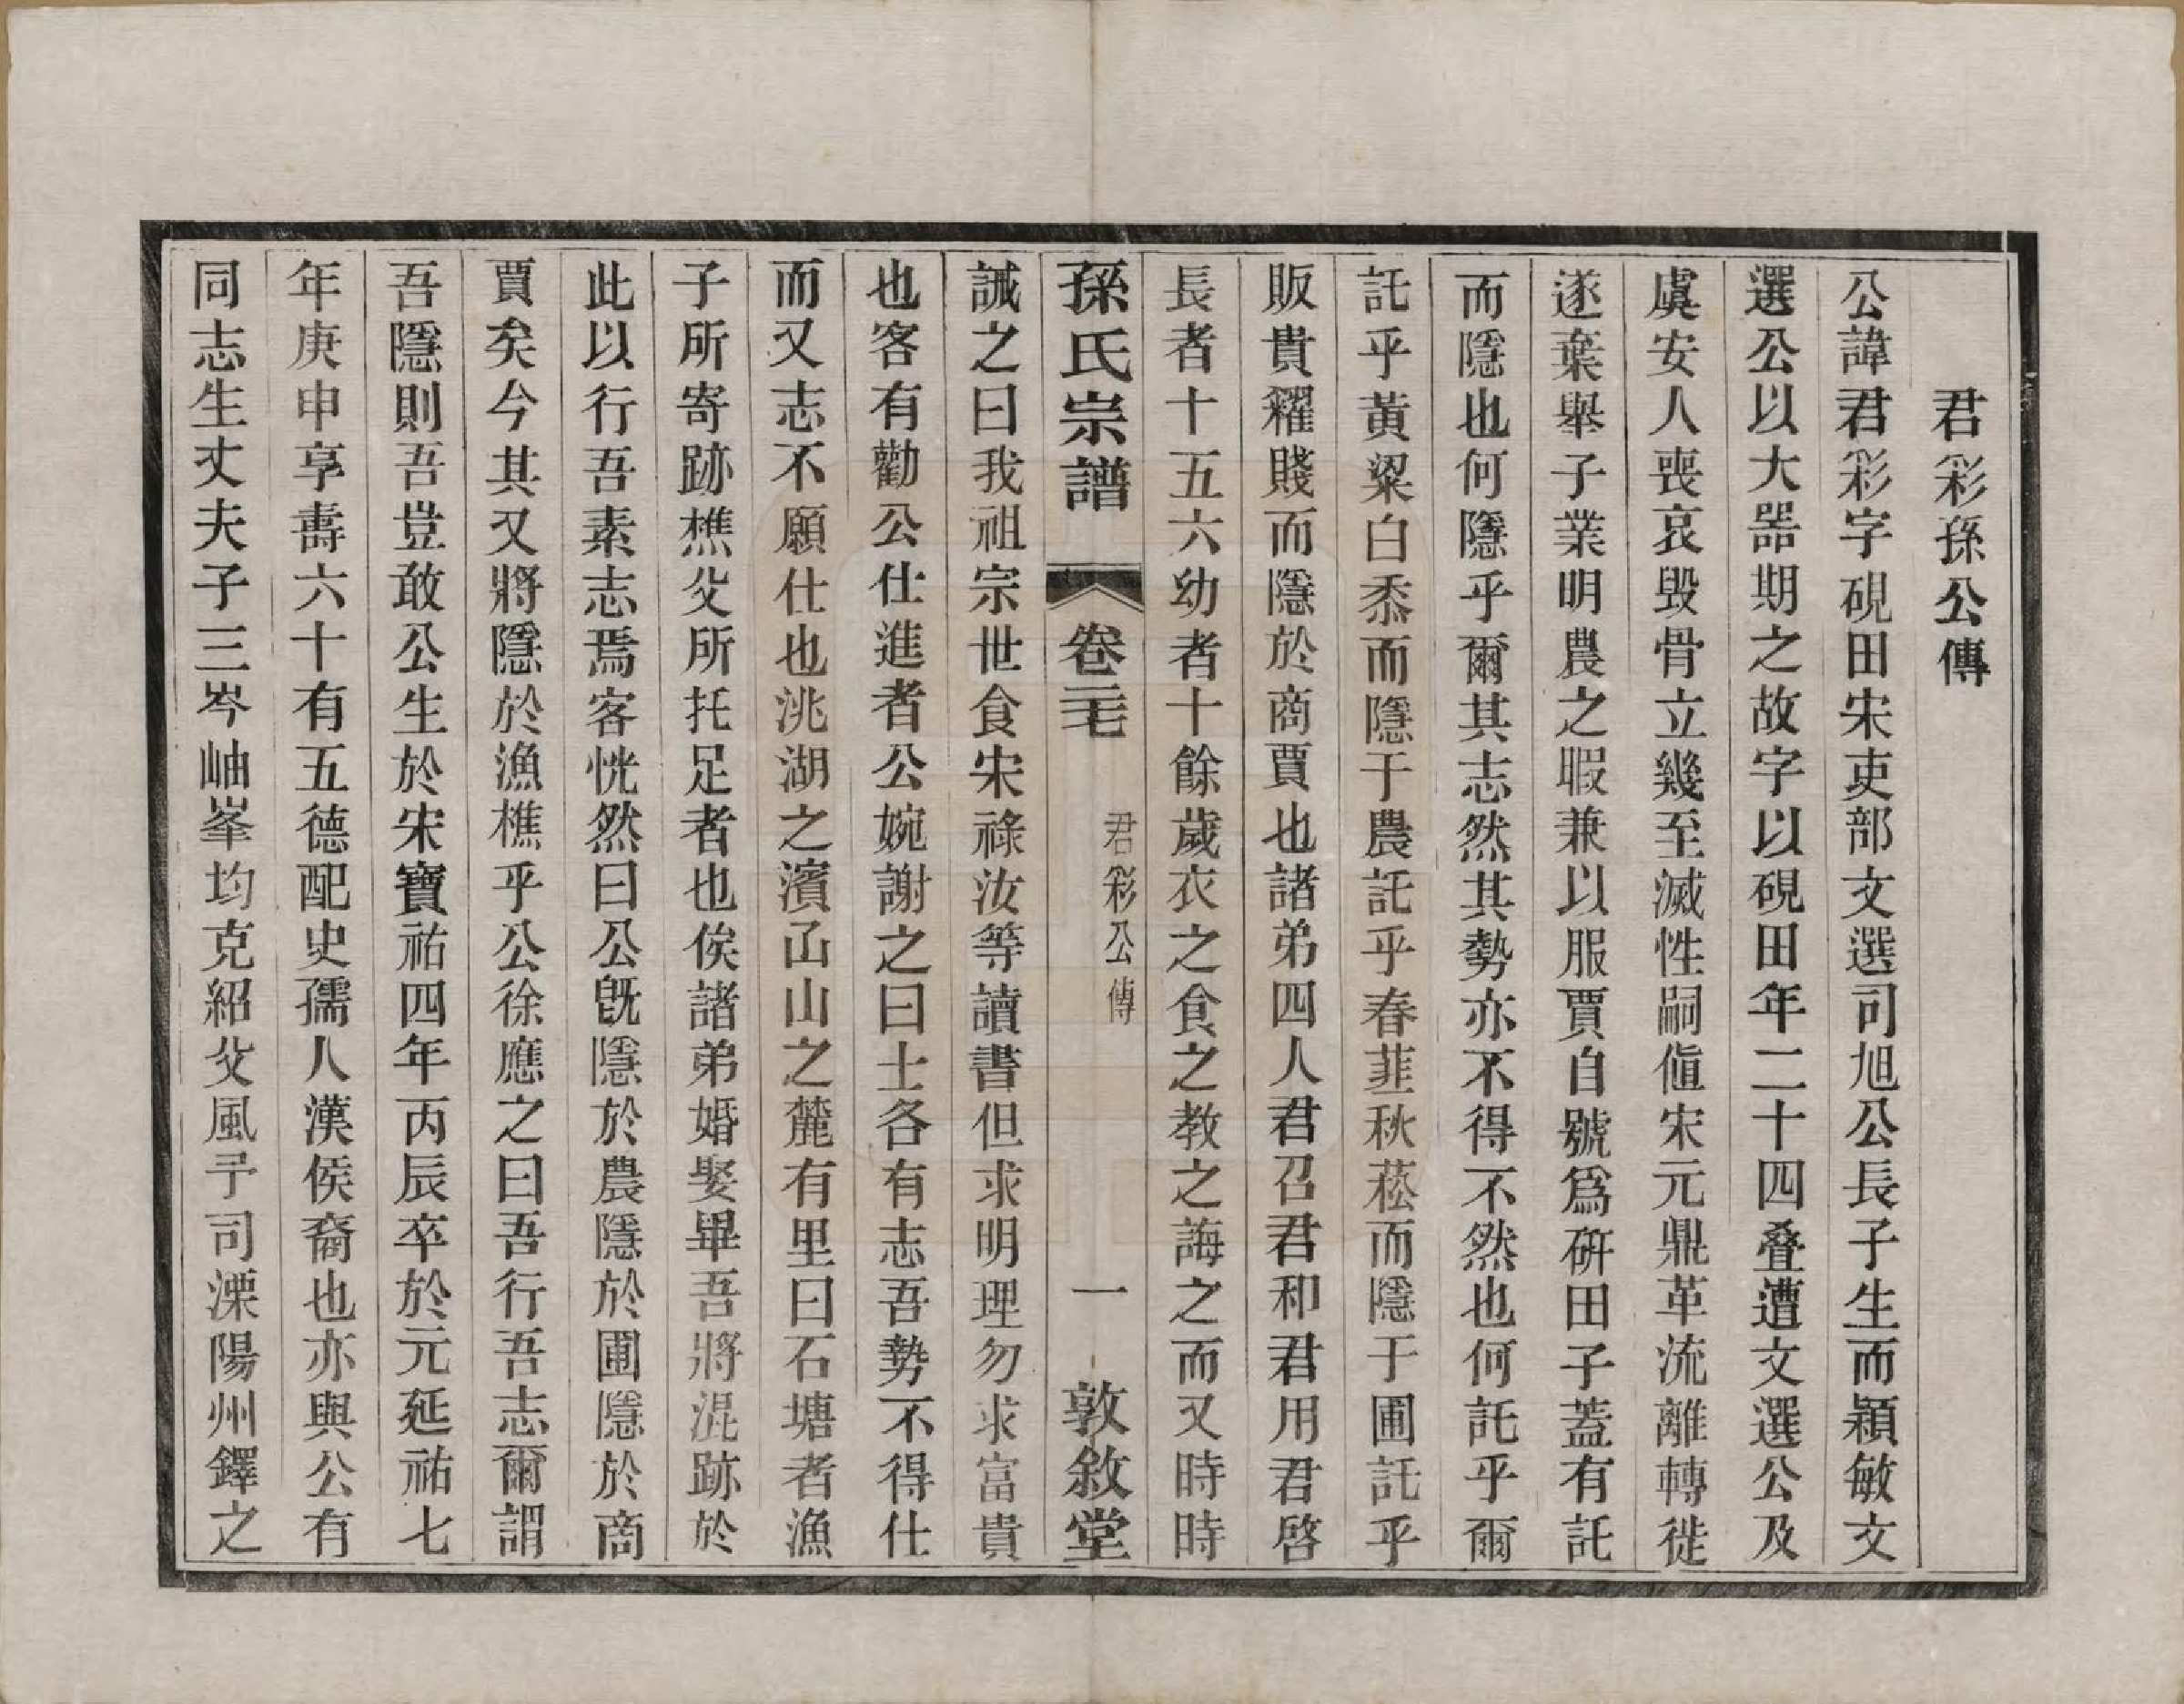 君彩孫公傳
公諱君彩字硯田宋吏部文選司旭公長子生而穎敏文
選公以大噐期之故字以硯田年二十四叠遭文選公及
虞安人喪哀毀骨立幾至滅性嗣值宋元鼎革流離轉徙
遂棄舉子業明農之暇兼以服賈自號爲硏田子蓋有託
而隱也何隱乎爾其志然其勢亦不得不然也何託乎爾
託乎黃粱白黍而隱于農託乎春韮秋菘而隱于圃託乎
販貴糴賤而隱於商賈也諸弟四人君召君和君用君啓
長者十五六幼者十餘歲衣之食之教之誨之而又時時
孫氏宗譜 卷二七 君彩公傳 一 敦敘堂
誡之曰我祖宗世食宋祿汝等讀書但求明理勿求富貴
也客有勸公仕進者公婉謝之曰士各有志吾勢不得仕
而又志不願仕也洮湖之濱凾山之麓有里曰石塘者漁
子所寄跡樵父所托足者也俟諸弟婚娶畢吾將混跡於
此以行吾素志焉客恍然曰公旣隱於農隱於圃隱於商
賈矣今其又將隱於漁樵乎公徐應之曰吾行吾志爾謂
吾隱則吾豈敢公生於宋寶祐四年丙辰卒於元延祐七
年庚申享壽六十有五德配史孺人漢侯裔也亦與公有
同志生丈夫子三岑岫峯均克紹父風予司溧陽州鐸之